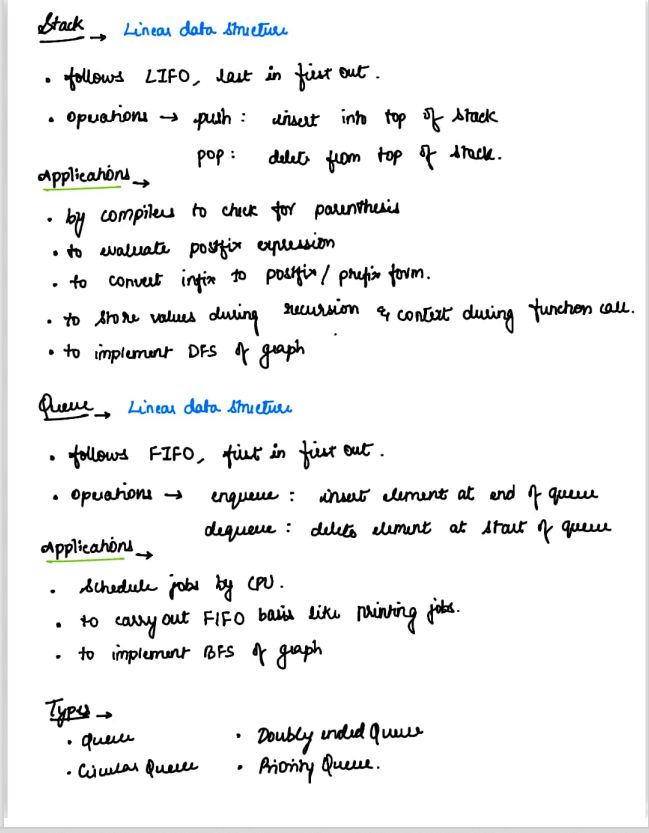 Stack → Linear data structure
• follows LIFO, last in first out.
• operations → push : insert into top of stack
pop : delete from top of stack.
Applications →
• by compilers to check for parenthesis
• to evaluate postfix expression
• to convert infix to postfix / prefix form.
• to store values during recursion & context during function call.
• to implement DFS of graph
Queue → Linear data structure
• follows FIFO, first in first out.
• operations → enqueue : insert element at end of queue
dequeue : delete element at start of queue
Applications →
• Schedule jobs by CPU.
• to carry out FIFO basis like printing jobs.
• to implement BFS of graph
Types →
• Queue • Doubly ended Queue
• Circular Queue • Priority Queue.